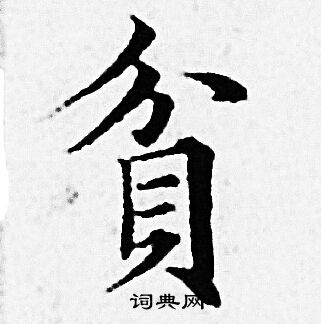 貧
词典网